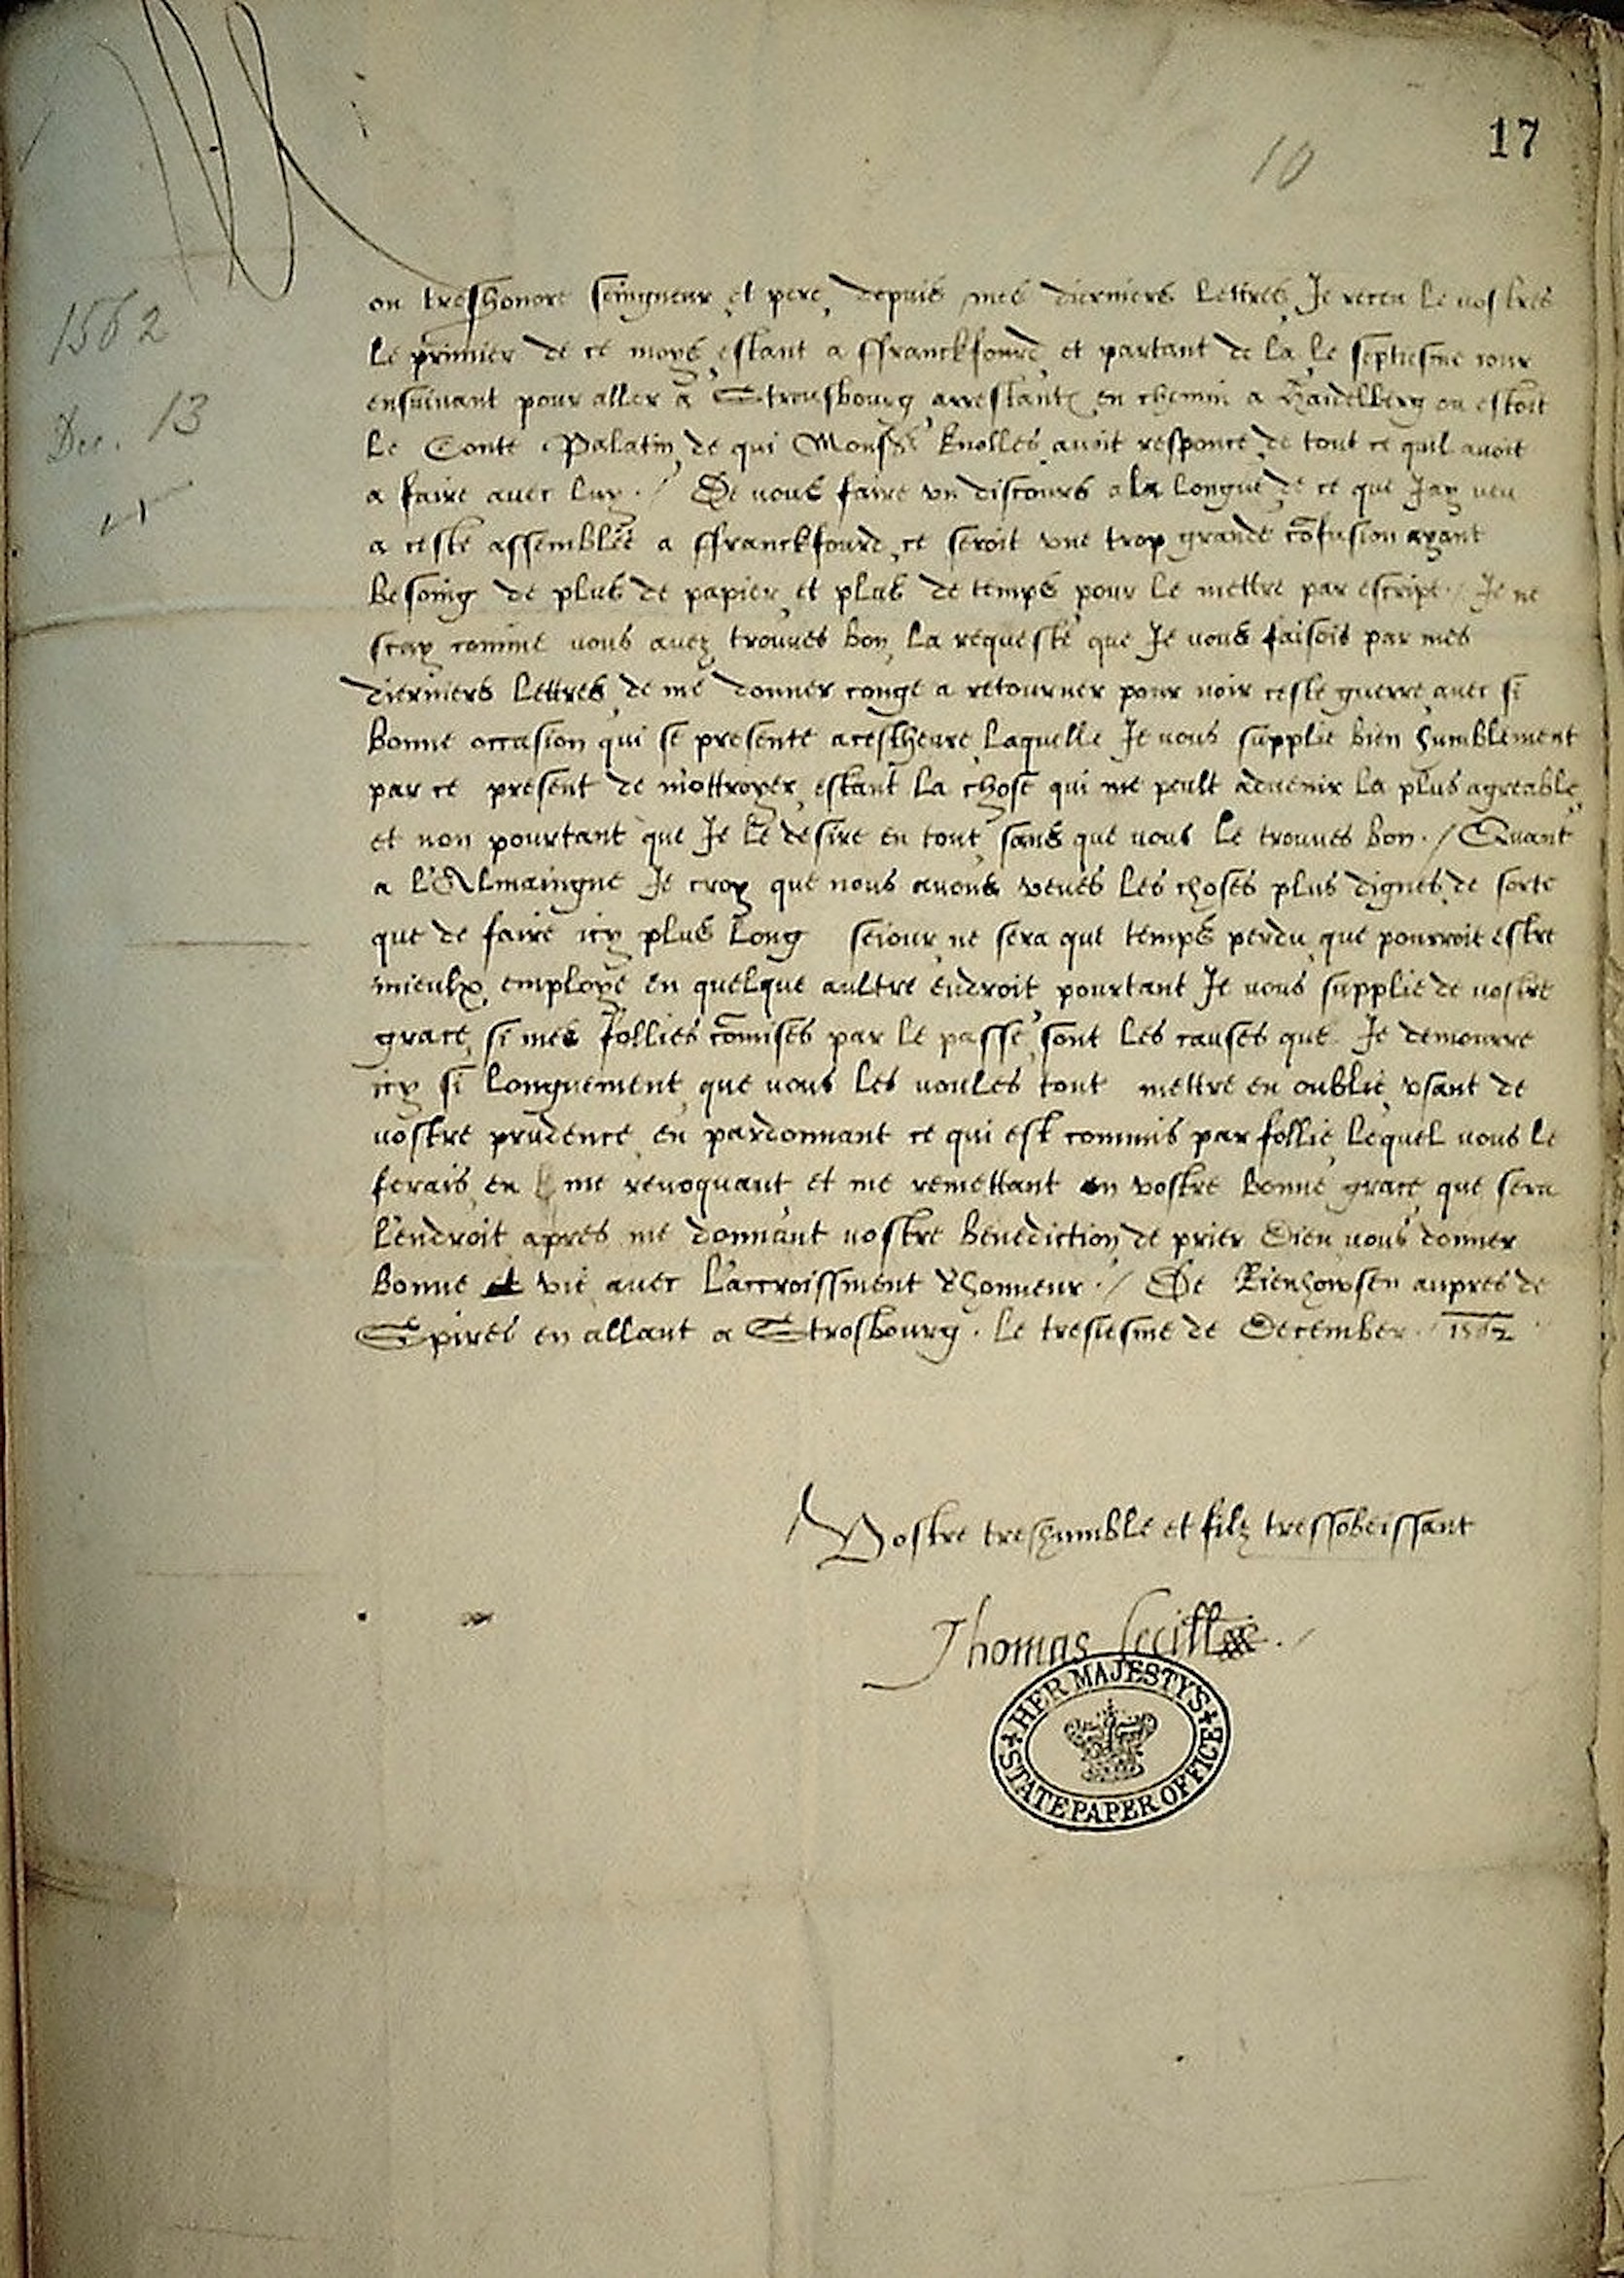 17
10
1562
Dec. 13
Mon treshonore seingneur et pere, depuis mes dierniers lettres Je receu le vostres
le primier de ce moys, estant a ffranckfourd, et partant de la le septiesme iour
ensuivant pour aller a Strousbourg arrestants en chemin a Haidelberg ou estoit
le Conte Palatin, de qui Monsr Knolles avoit responce de tout ce quil avoit
a faire avec luy ./ De vous faire vn discours a la longue de ce que Jay veu
a ceste assemblée a ffranckfourd, ce seroit vne trop grande cōfusion ayant
besoing de plus de papier, et plus de temps pour le mettre par escript ./ Je ne
scay comme vous avez trouves bon, la requeste que Je vous faisois par mes
dierniers lettres, de me donner conge a retourner pour voir ceste guerre, avec si
bonne occasion qui se presente acestheure, laquelle Je vous supplie bien humblement
par ce present de m'ottroyer, estant la chose qui me peult advenir la plus agreable,
et non pourtant que Je le desire en tout, sans que vous le trouves bon ./ Quant
a l'Almaingne Je croy que nous avons veues les choses plus dignes, de sorte
que de faire icy plus long seiour, ne sera que temps perdu, que pourroit estre
mieulx employé en quelque aultre endroit pourtant Je vous supplie de vostre
grace, si mes follies cōmises par le passé, sont les causes que Je demourre
icy si longuement, que vous les voules tout mettre en oublie, vsant de
vostre prudence, en pardonnant ce qui est commis par follie, lequel vous le
ferais, en me revoquant et me remettant en vostre bonne grace, que sera
l'endroit apres me donnant vostre benediction, de prier Dieu vous donner
bonne vie avec l'accroissment d'honneur ./ De Rienhowsen aupres de
Spires en allant a Strosbourg . le tresiesme de December . 1562
Vostre treshumble et filz tressobeissant
Thomas Cecill
HER MAJESTYS STATE PAPER OFFICE